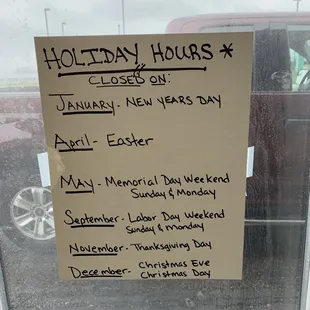 HOLIDAY HOURS *
CLOSED ON:
JANUARY - NEW YEARS DAY
April - Easter
MAY - Memorial Day Weekend
Sunday & Monday
September - Labor Day Weekend
Sunday & monday
November - Thanksgiving Day
December - Christmas Eve
Christmas Day